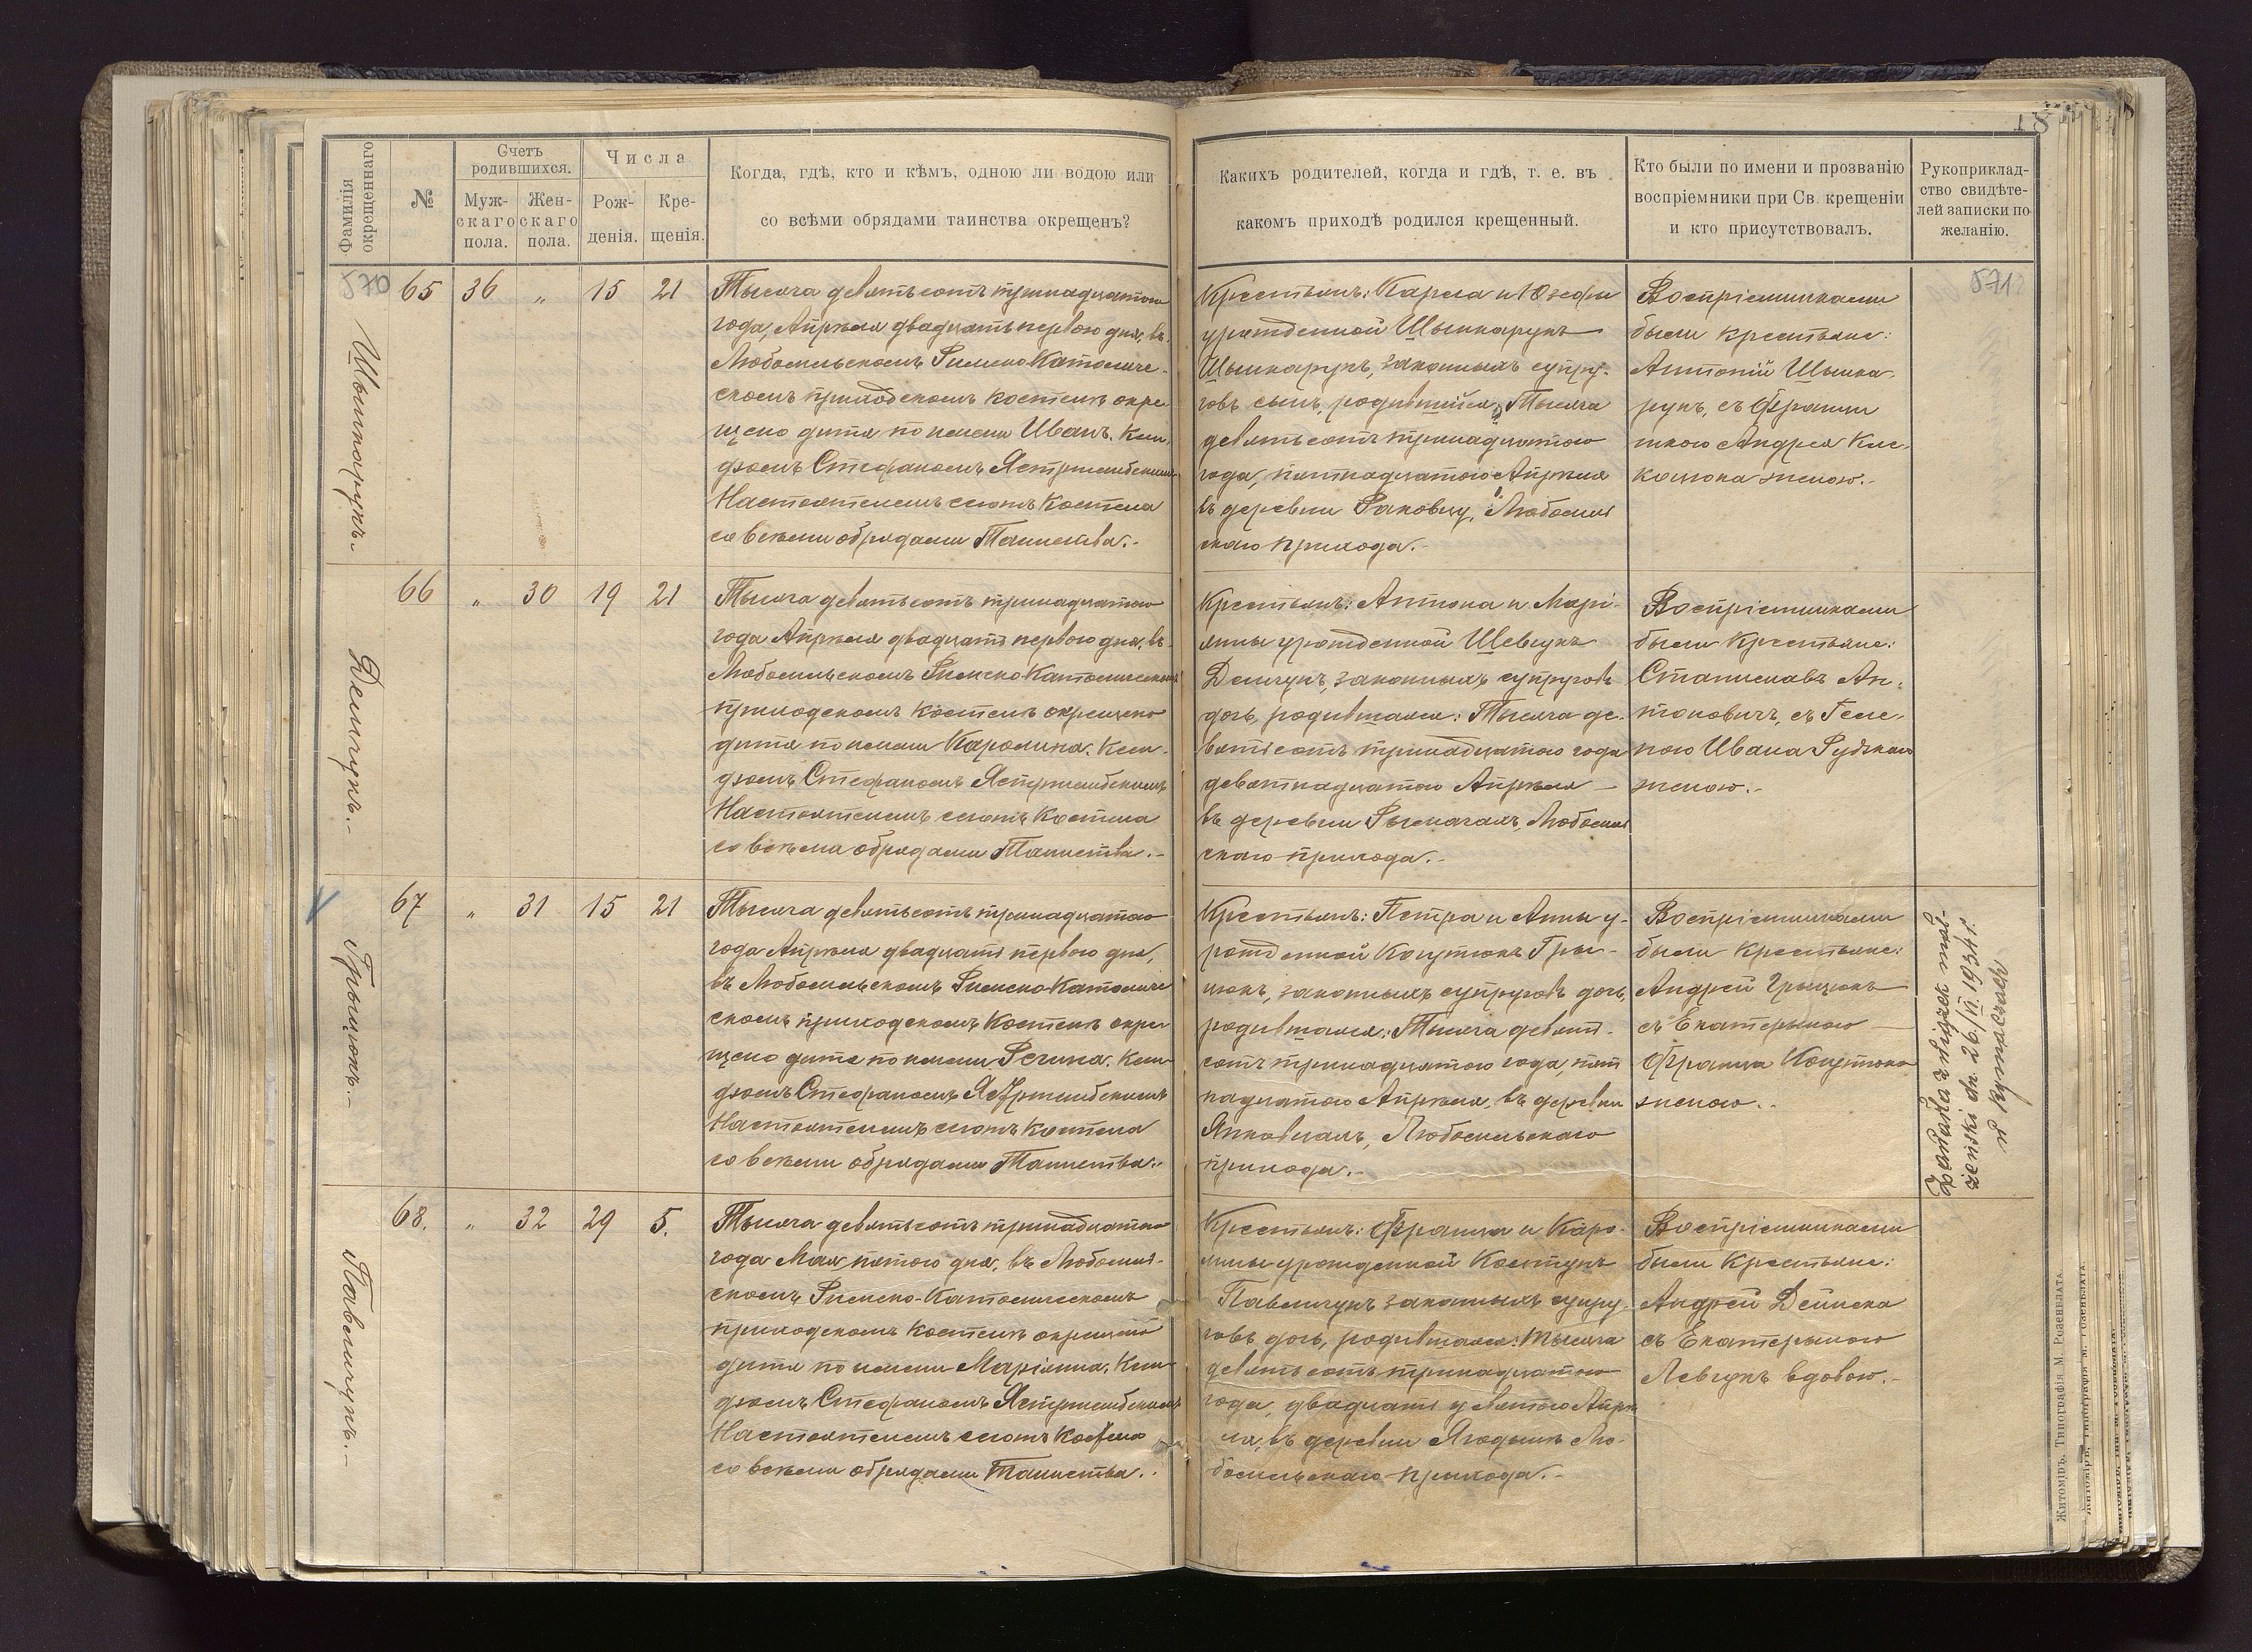 Фамилія окрещеннаго
№
Счетъ родившихся.
Мужскаго пола.
Женскаго пола.
Числа
Рожденія.
Крещенія.
Когда, гдѣ, кто и кѣмъ, одною ли водою или
со всѣми обрядами таинства окрещенъ?
Какихъ родителей, когда и гдѣ, т. е. въ
какомъ приходѣ родился крещенный.
Кто были по имени и прозванію
воспріемники при Св. крещеніи
и кто присутствовалъ.
Рукоприклад-
ство свидѣте-
лей записки по
желанію.
570
571
65 36 „ 15 21
Тысяча девятьсотъ тринадцатого
года, Апрѣля двадцать первого дня, въ
Любомльскомъ Римско-Католиче-
скомъ приходскомъ костелѣ окре-
щено дитя по имени Иванъ. Ксен-
дзомъ Стефаномъ Ястржембскимъ
Настоятелемъ сегоже Костела
со всѣми обрядами Таинства.-
Крестьянъ: Карла и Юзефы
урожденной
законныхъ супру-
говъ сынъ, родившійся: Тысяча
девятьсотъ тринадцатого
года, пятнадцатого Апрѣля
въ деревни Раковцу, Любомль
скаго прихода.-
Воспріемниками
были крестьяне:
Антоній
съ Франци
шкою Андрея
женою.-
66 „ 30 19 21
Демчукъ.-
Тысяча девятьсотъ тринадцатого
года Апрѣля двадцать первого дня, въ
Любомльскомъ Римско-Католическомъ
приходскомъ Костелѣ окрещено
дитя по имени Каролина. Ксен-
дзомъ Стефаномъ Ястржембскимъ
Настоятелемъ сегоже Костела
со всѣми обрядами Таинства.-
Крестьянъ: Антона и Марі-
янны урожденной Шевчукъ
Демчукъ, законныхъ супруговъ
дочь, родившаяся: Тысяча де-
вятьсотъ тринадцатого года
девятнадцатого Апрѣля
въ деревни Рымачахъ, Любомль
скаго прихода.-
Воспріемниками
были Крестьяне:
Станиславъ Ан-
тоновичъ, съ Геле-
ною Ивана
женою.-
67 „ 31 15 21
Грыцюкъ.-
Тысяча девятьсотъ тринадцатого
года Апрѣля двадцать первого дня,
въ Любомльскомъ Римско-Католиче
скомъ приходскомъ Костелѣ окре
щено дитя по имени Регина. Ксен-
дзомъ Стефаномъ Ястржембскимъ
Настоятелемъ сегоже Костела
со всѣми обрядами Таинства.-
Крестьянъ: Петра и Анны у-
рожденной Коцутюкъ Гры-
цюкъ, законныхъ супруговъ дочь,
родившаяся: Тысяча девят-
сотъ тринадцатого года, пят
надцатого Апрѣля, въ деревни
Янковцахъ, Любомльскаго
прихода.-
Воспріемниками
были Крестьяне:
Андрей Грыцюкъ
съ Екатерыною
Франца Коцутюка
женою.-
Zawarła związek mał-
żeński dn. 26/VI. 1934 r.
w Rymaczach
68. „ 32 29 5.
Павельчукъ.-
Тысяча девятьсотъ тринадцатого
года Мая, пятого дня, въ Любомль-
скомъ Римско-Католическомъ
приходскомъ Костелѣ окрещено
дитя по имени Маріянна. Ксен
дзомъ Стефаномъ Ястржембскимъ
Настоятелемъ сегоже Костела
со всѣми обрядами Таинства.-
Крестьянъ: Франца и Каро-
лины урожденной Костукъ
Павельчукъ законныхъ супру
говъ дочь, родившаяся: Тысяча
девятьсотъ тринадцатого
года, двадцать девятого Апрѣ
ля, въ деревни Ягодынѣ Лю-
бомльскаго прихода.-
Воспріемниками
были Крестьяне:
Андрей Дейнека
съ Екатерыною
Левчукъ вдовою.-
Житоміръ, Типографія М. Розенблата.